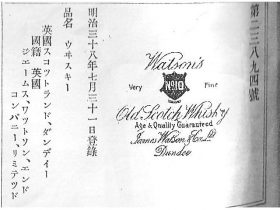 第二三八九四號
Watson's
Very
No 10
Fine
Old Scotch Whisky
Age & Quality Guaranteed
James Watson & Co. Ld.
Dundee
明治三十八年七月三十一日登錄
品名 ウヰスキー
英國スコットランド、ダンデイー
國籍 英國
ジェームス、ワットソン、エンド
コンパニー、リミテツド